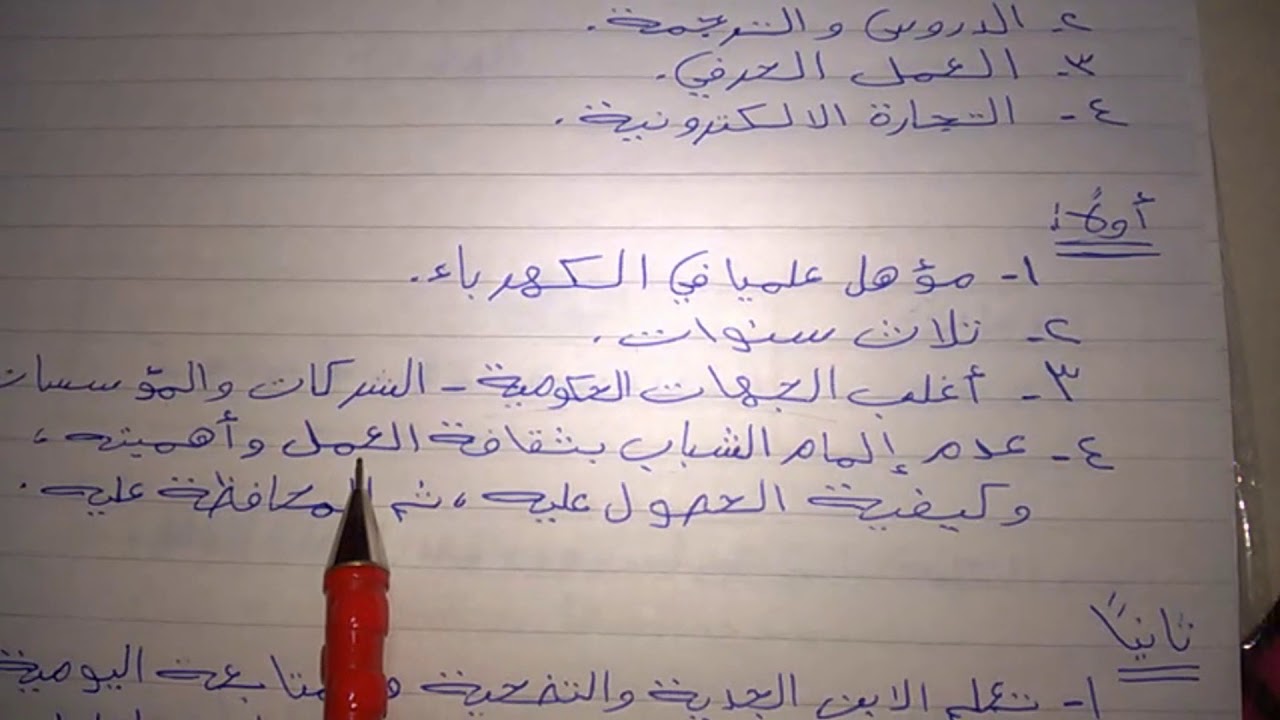 ٢- الدروس والترجمة.
٣- العمل الحرفي.
٤- التجارة الالكترونية.
أولاً:
١- مؤهل علميا في الكهرباء.
٢- ثلاث سنوات.
٣- أغلب الجهات الحكومية - الشركات والمؤسسات
٤- عدم إلمام الشباب بثقافة العمل وأهميته،
وكيفية الحصول عليه، ثم المحافظة عليه.
ثانياً
١- تعلم الابن الجدية والتضحية و المتابعة اليومية